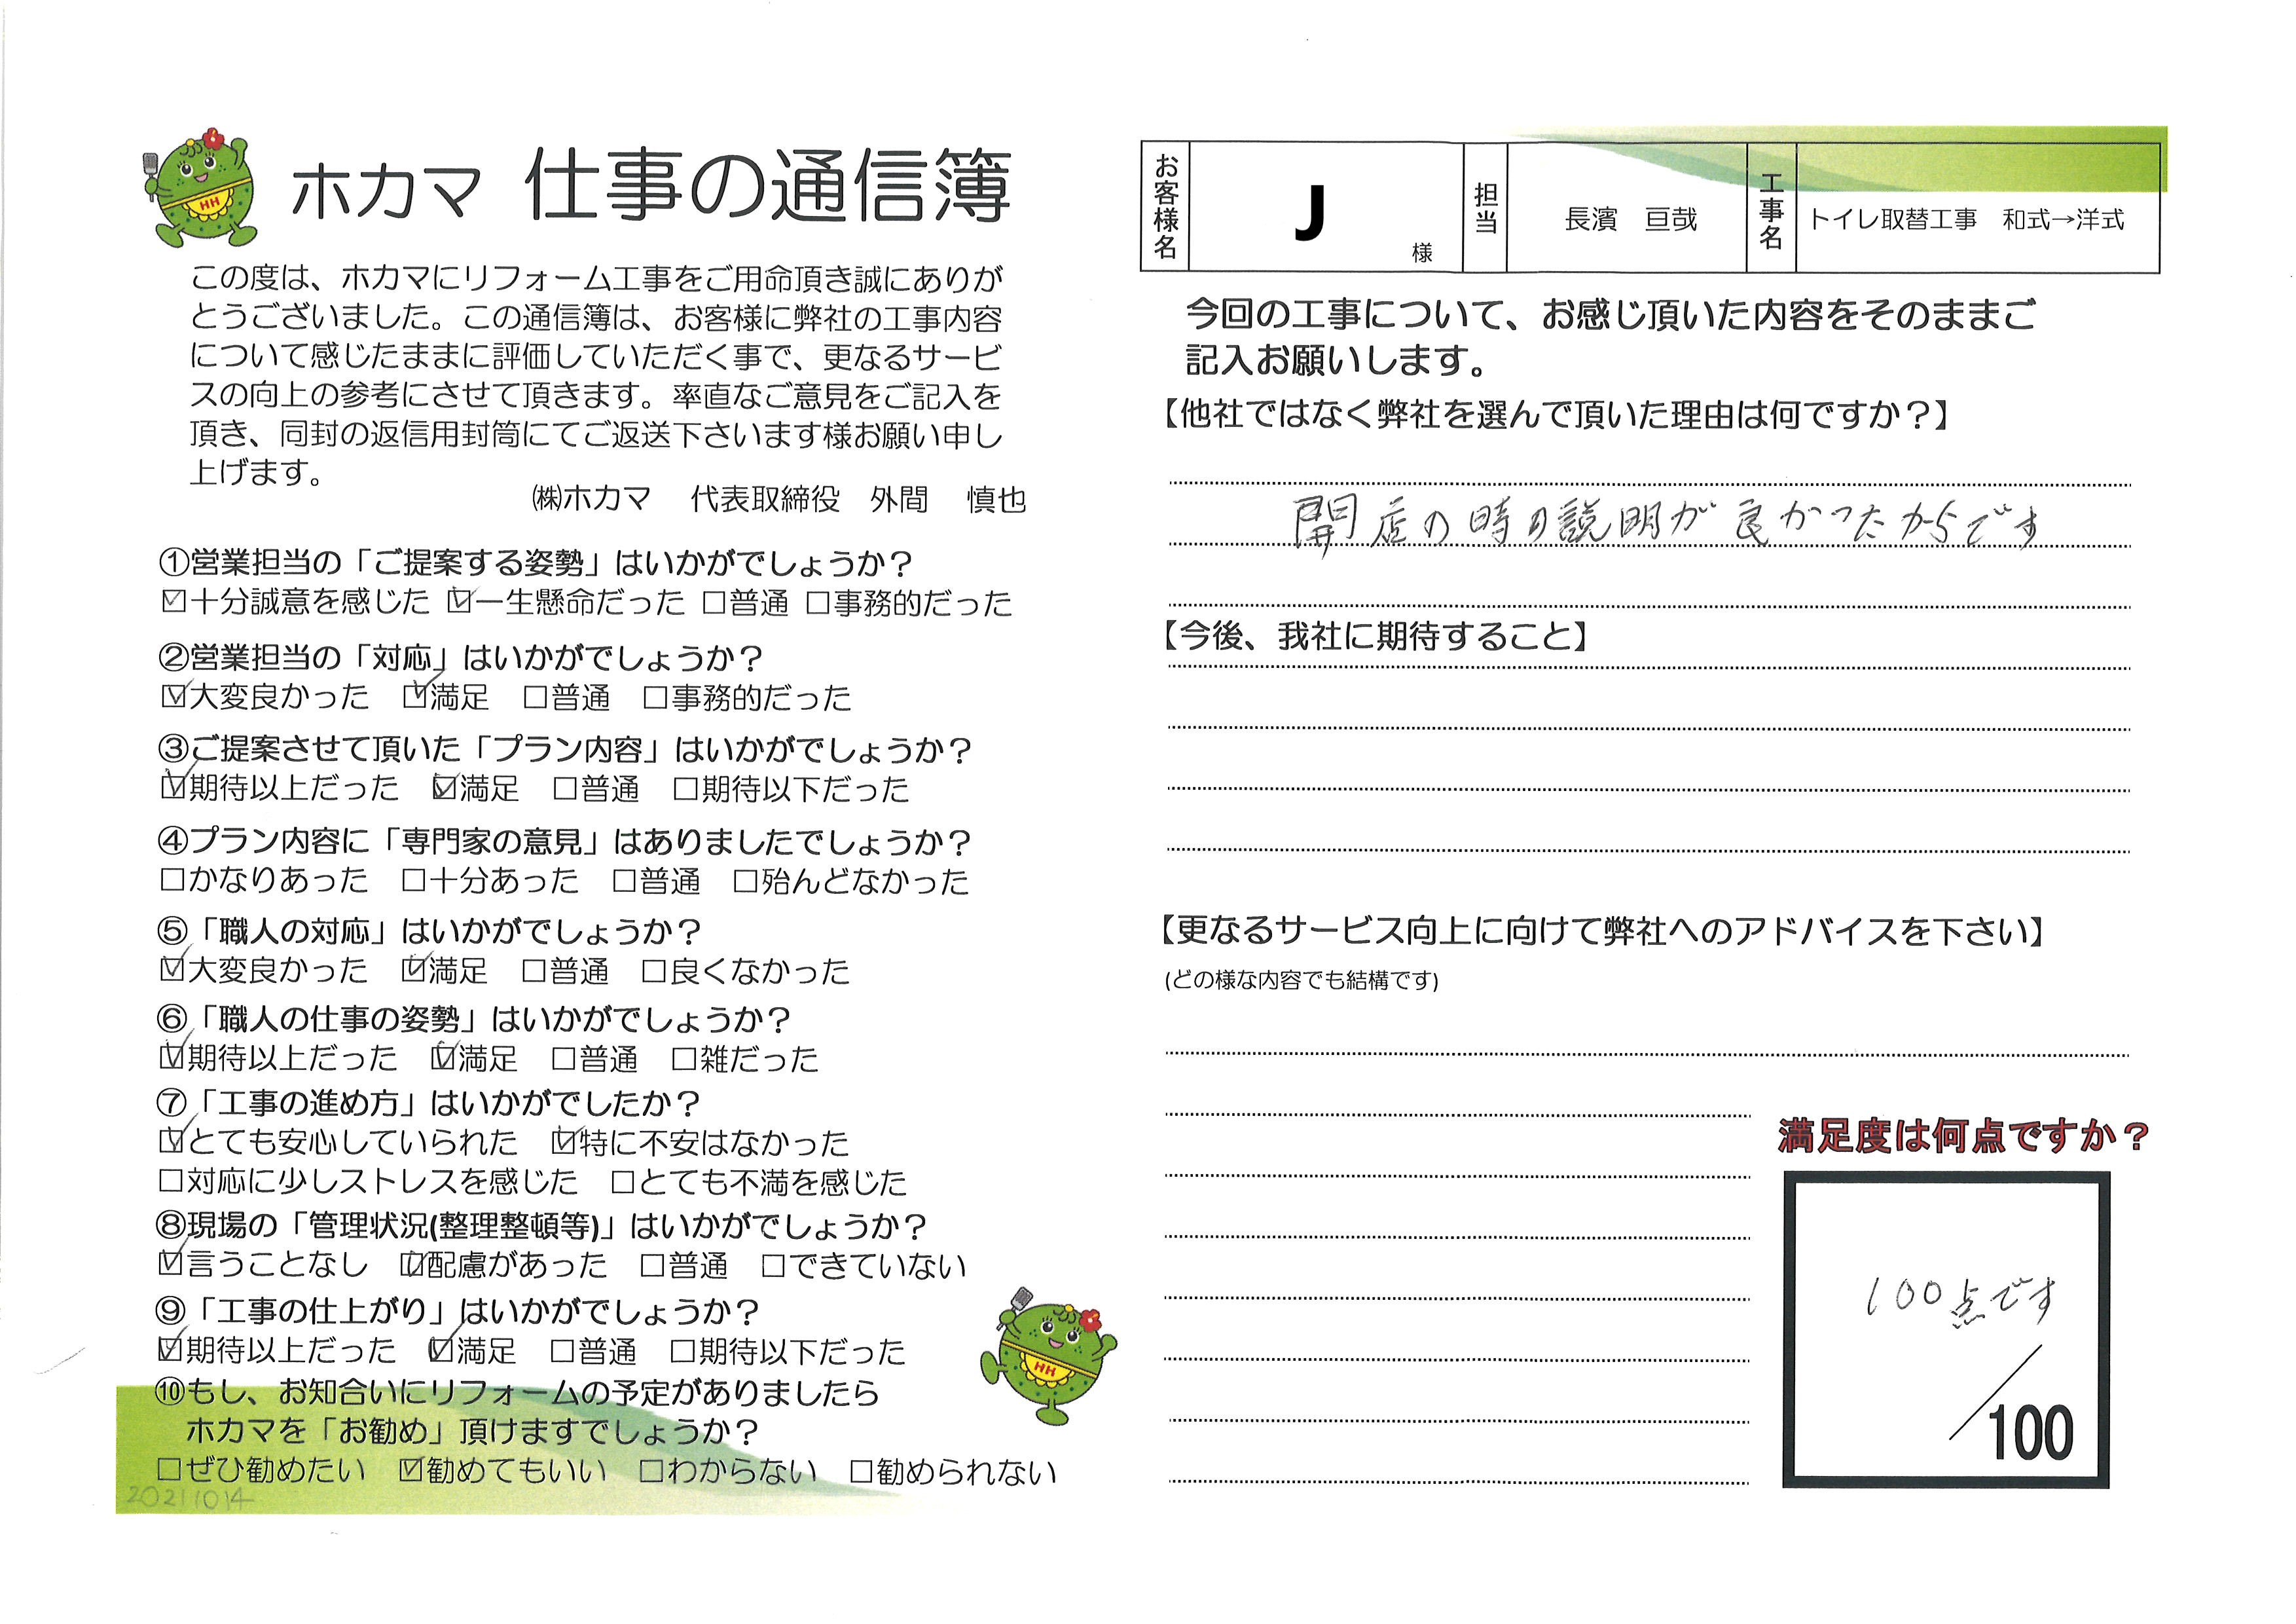 ホカマ 仕事の通信簿
この度は、ホカマにリフォーム工事をご用命頂き誠にありが
とうございました。この通信簿は、お客様に弊社の工事内容
について感じたままに評価していただく事で、更なるサービ
スの向上の参考にさせて頂きます。率直なご意見をご記入を
頂き、同封の返信用封筒にてご返送下さいます様お願い申し
上げます。
㈱ホカマ 代表取締役 外間 慎也
①営業担当の「ご提案する姿勢」はいかがでしょうか？
☑十分誠意を感じた ☑一生懸命だった □普通 □事務的だった
②営業担当の「対応」はいかがでしょうか？
☑大変良かった ☑満足 □普通 □事務的だった
③ご提案させて頂いた「プラン内容」はいかがでしょうか？
☑期待以上だった ☑満足 □普通 □期待以下だった
④プラン内容に「専門家の意見」はありましたでしょうか？
□かなりあった □十分あった □普通 □殆んどなかった
⑤「職人の対応」はいかがでしょうか？
☑大変良かった ☑満足 □普通 □良くなかった
⑥「職人の仕事の姿勢」はいかがでしょうか？
☑期待以上だった ☑満足 □普通 □雑だった
⑦「工事の進め方」はいかがでしたか？
☑とても安心していられた ☑特に不安はなかった
□対応に少しストレスを感じた □とても不満を感じた
⑧現場の「管理状況(整理整頓等)」はいかがでしょうか？
☑言うことなし ☑配慮があった □普通 □できていない
⑨「工事の仕上がり」はいかがでしょうか？
☑期待以上だった ☑満足 □普通 □期待以下だった
⑩もし、お知合いにリフォームの予定がありましたら
ホカマを「お勧め」頂けますでしょうか？
□ぜひ勧めたい ☑勧めてもいい □わからない □勧められない
20211014
HH
HH
お客様名 J 様 担当 長濱 亘哉 工事名 トイレ取替工事 和式→洋式
今回の工事について、お感じ頂いた内容をそのままご
記入お願いします。
【他社ではなく弊社を選んで頂いた理由は何ですか？】
開店の時の説明が良かったからです
【今後、我社に期待すること】
【更なるサービス向上に向けて弊社へのアドバイスを下さい】
(どの様な内容でも結構です)
満足度は何点ですか？
100点です
/100